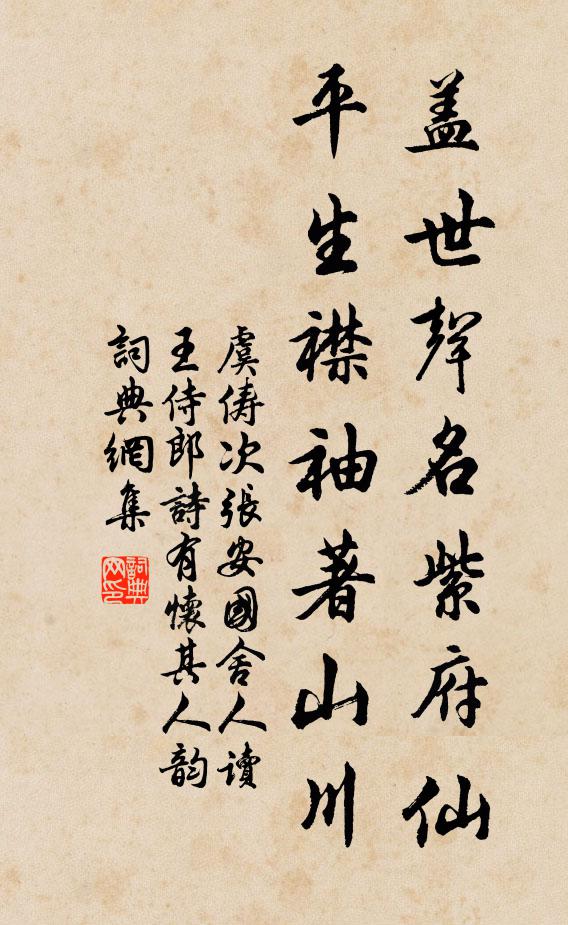 盖世聲名紫府仙
平生襟袖著山川
虞儔次張安國舍人讀
王侍郎詩有懷其人韵
詞典網集
詞典网印